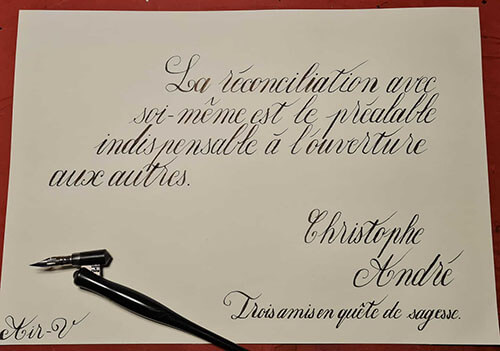 La réconciliation avec
soi-même est le préalable
indispensable à l'ouverture
aux autres.
Christophe
André
Trois amis en quête de sagesse.
Air-V